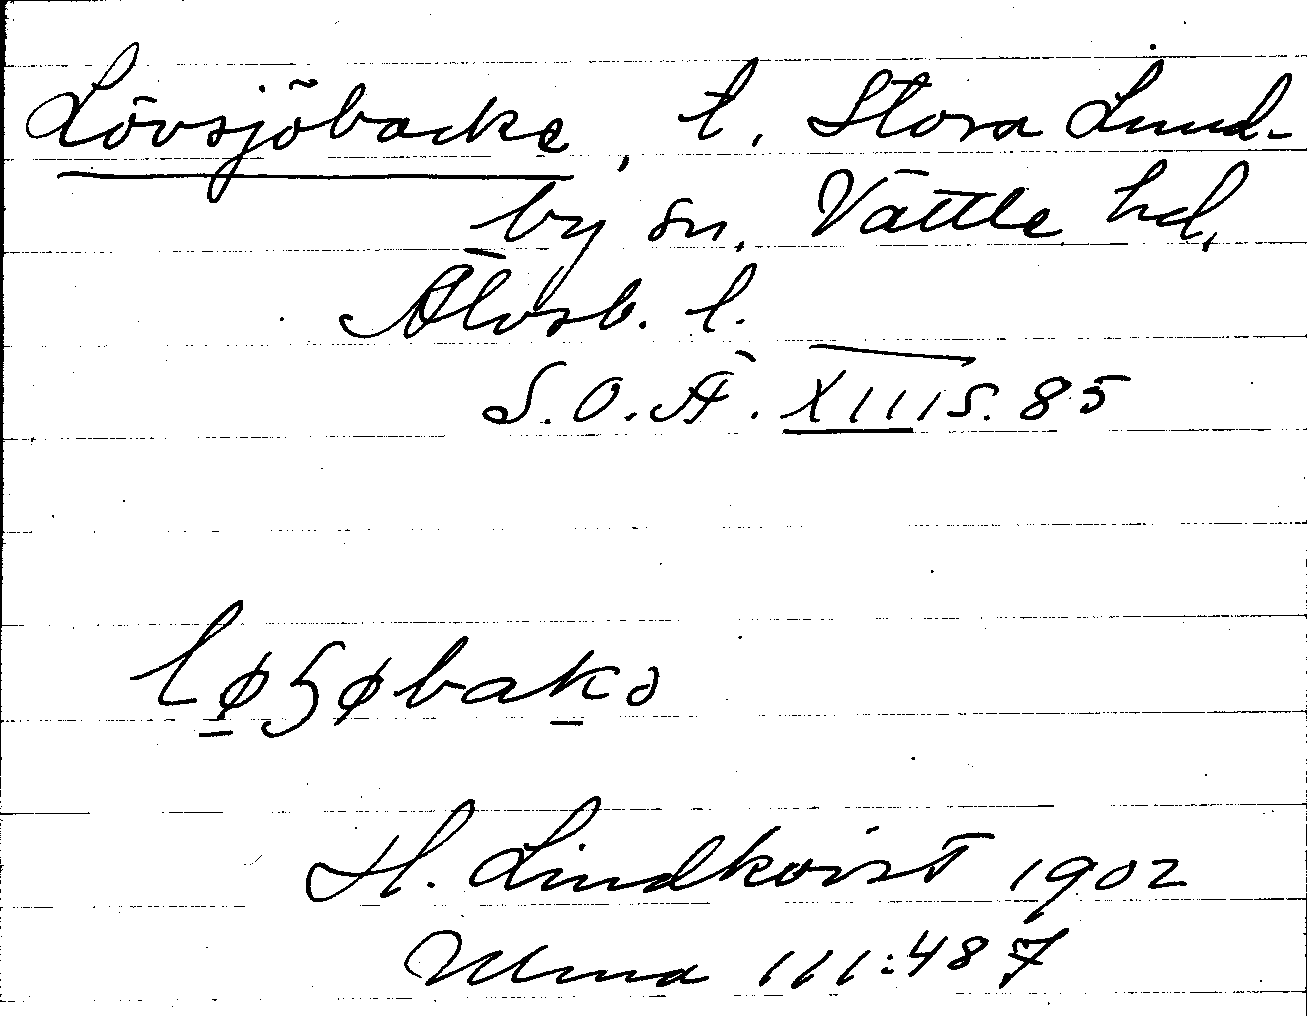 Lövsjöbacke, t. Stora Lund-
by sn. Vättle hd,
Älvsb. l.
S.O.Ä. XIII S. 85
løʒøbakə
H. Lindkvist 1902
Ulma 111:487